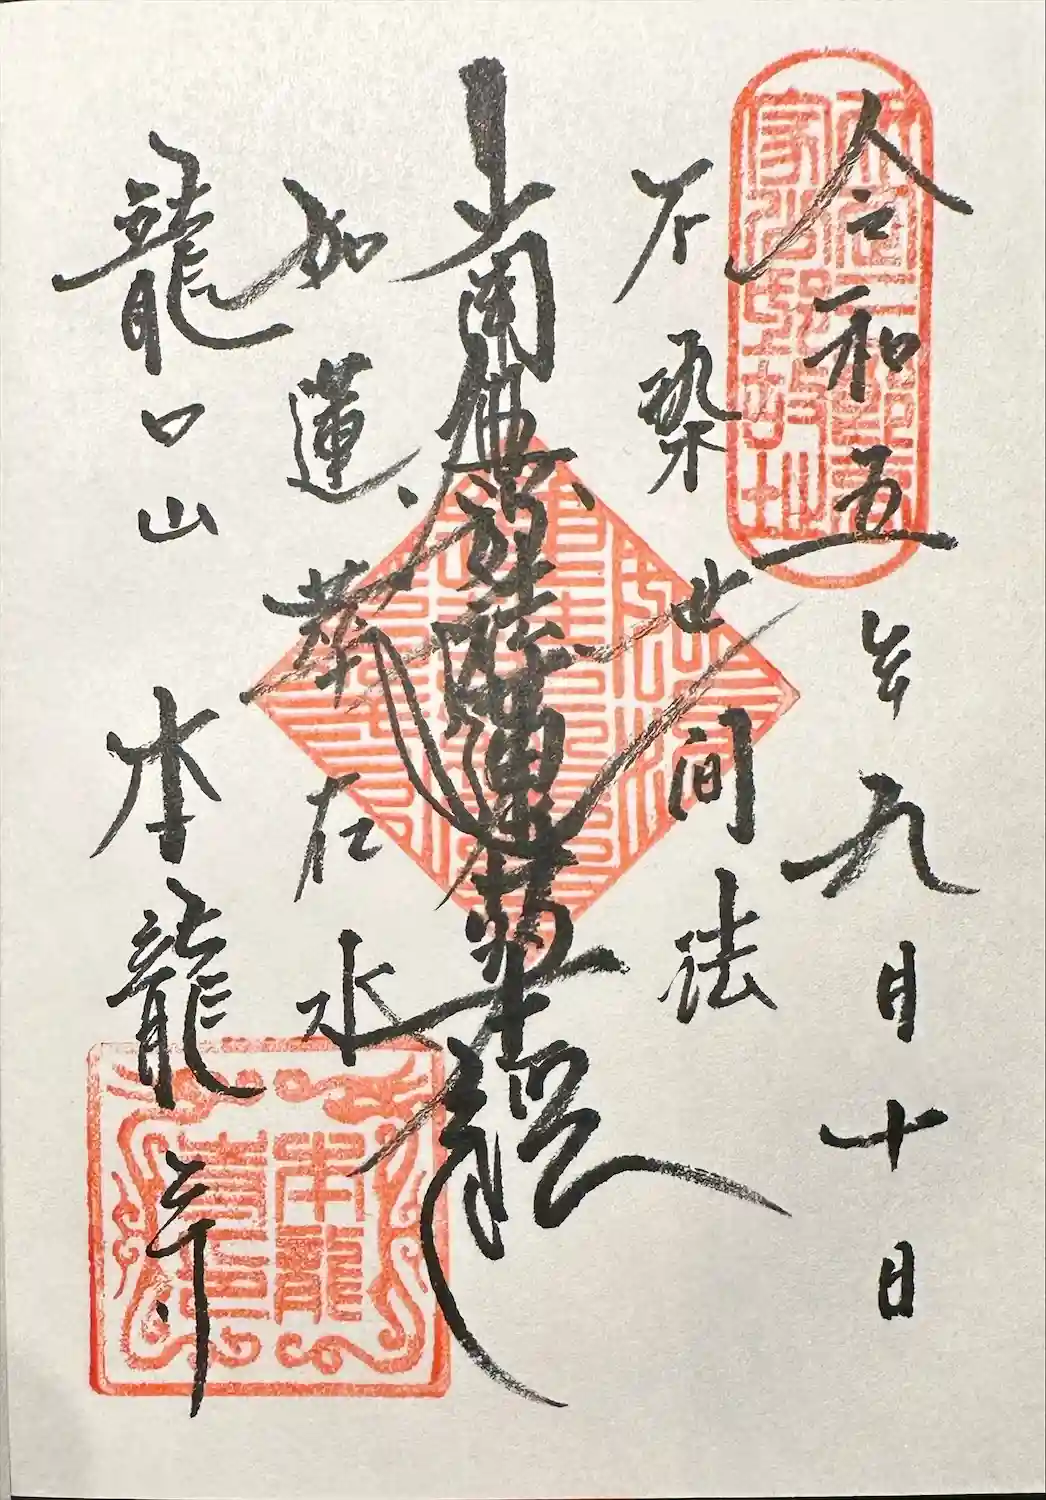 令和五年九月十日
不染世間法
南無妙法蓮華經
如蓮華在水
龍口山 本龍寺
本龍
寺印